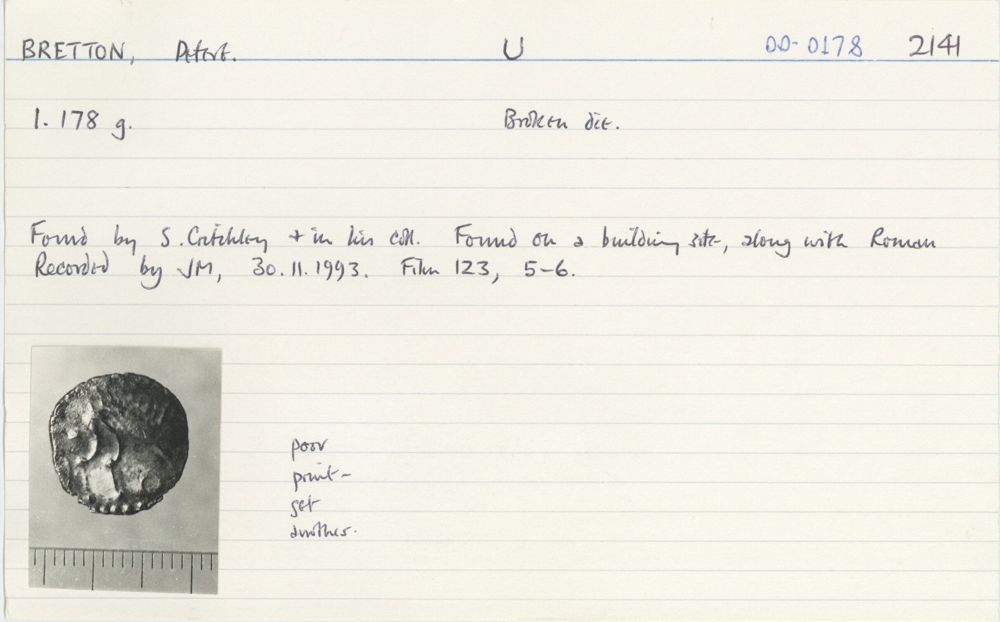 BRETTON, Peterb. U 00-0178 2141
1.178 g. Broken die.
Found by S. Critchley + in his coll. Found on a building site, along with Roman
Recorded by JM, 30.11.1993. Film 123, 5-6.
poor
print-
get
another.